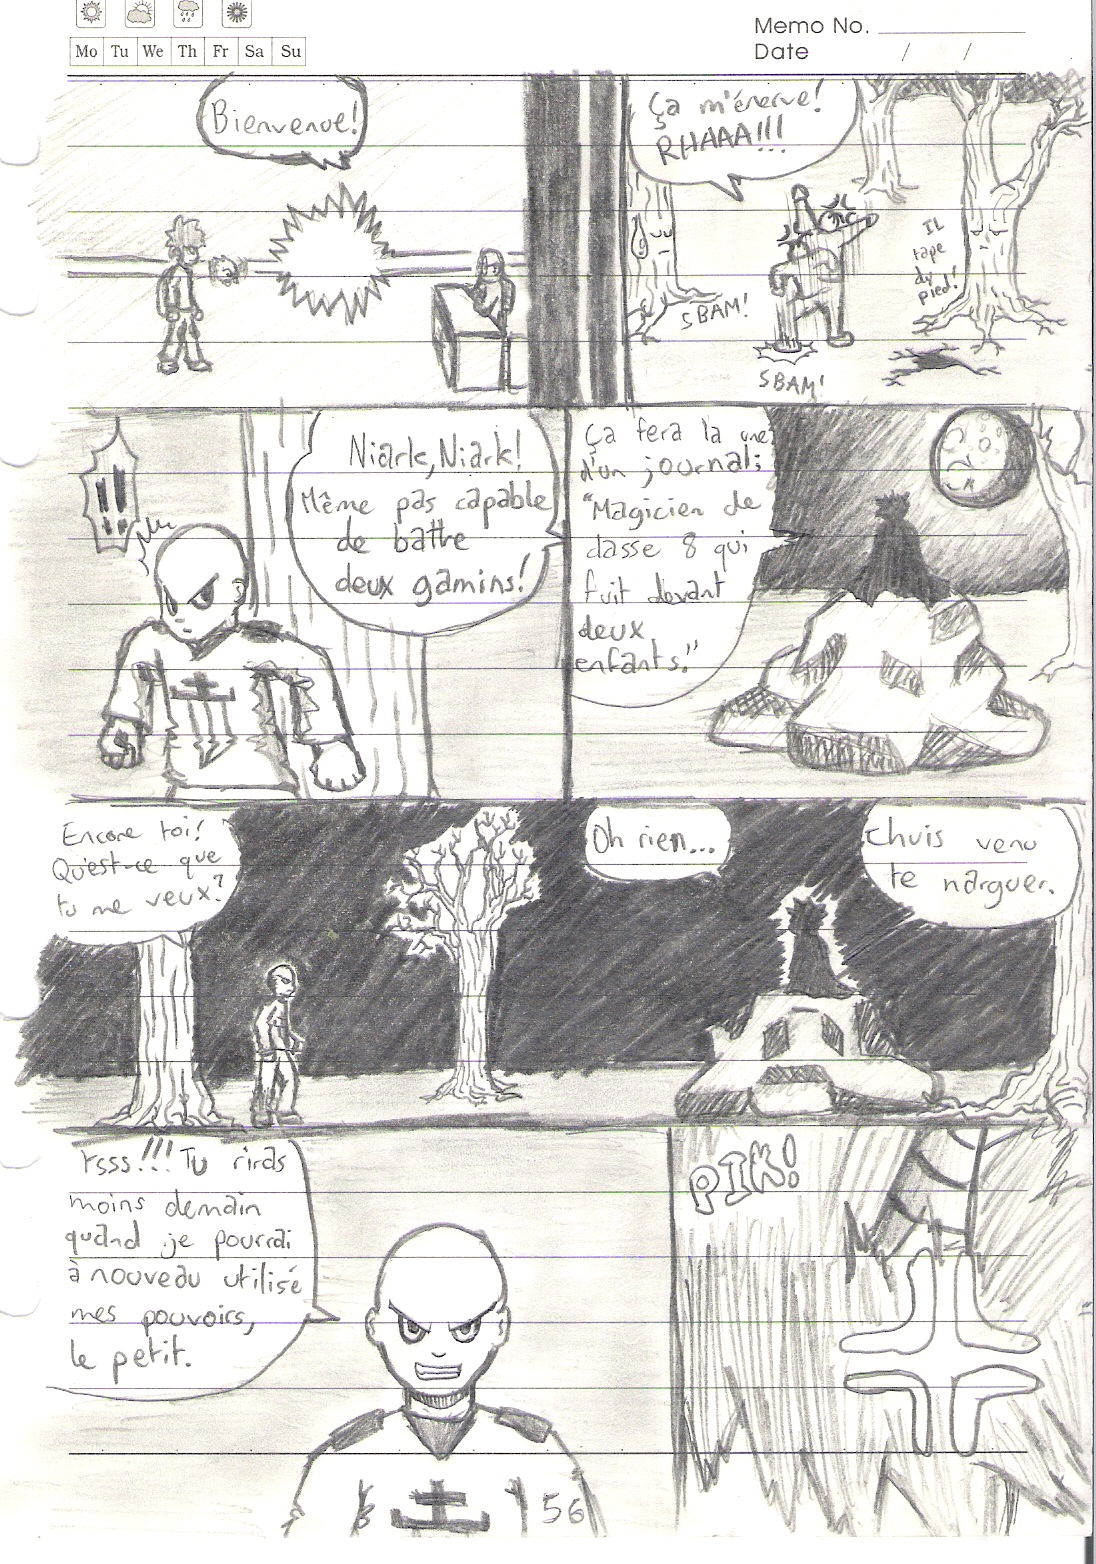 Memo No.
Mo Tu We Th Fr Sa Su
Date / /
Bienvenue!
Ça m'énerve!
RHAAA!!!
IL
tape
du
pied!
SBAM!
SBAM!
!!
Niark, Niark!
Même pas capable
de battre
deux gamins!
Ça fera la une
d'un journal;
"Magicien de
classe 8 qui
fuit devant
deux
enfants."
Encore toi!
Qu'est-ce que
tu me veux?
Oh rien...
Chuis venu
te narguer.
rsss!!! Tu riras
moins demain
quand je pourrai
à nouveau utilisé
mes pouvoirs,
le petit.
PIK!
土
56